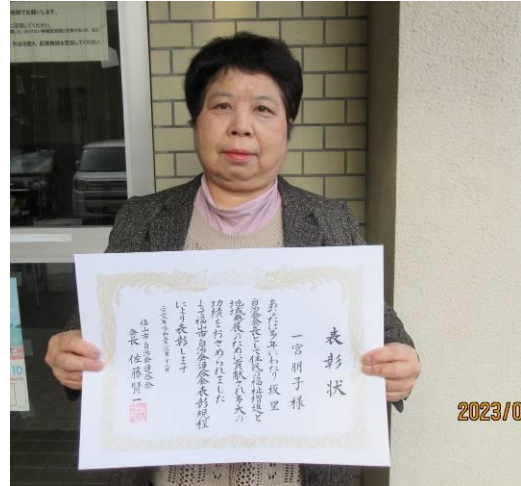 表彰状
一宮朋子様
あなたは多年にわたり坂里
自治会会長として住民の福祉増進と
地域発展のために貢献され多大の
功績をおさめられました
よって福山市自治会連合会表彰規程
により表彰します
福山市自治会連合会
会長 佐藤賢一
2023/0
10